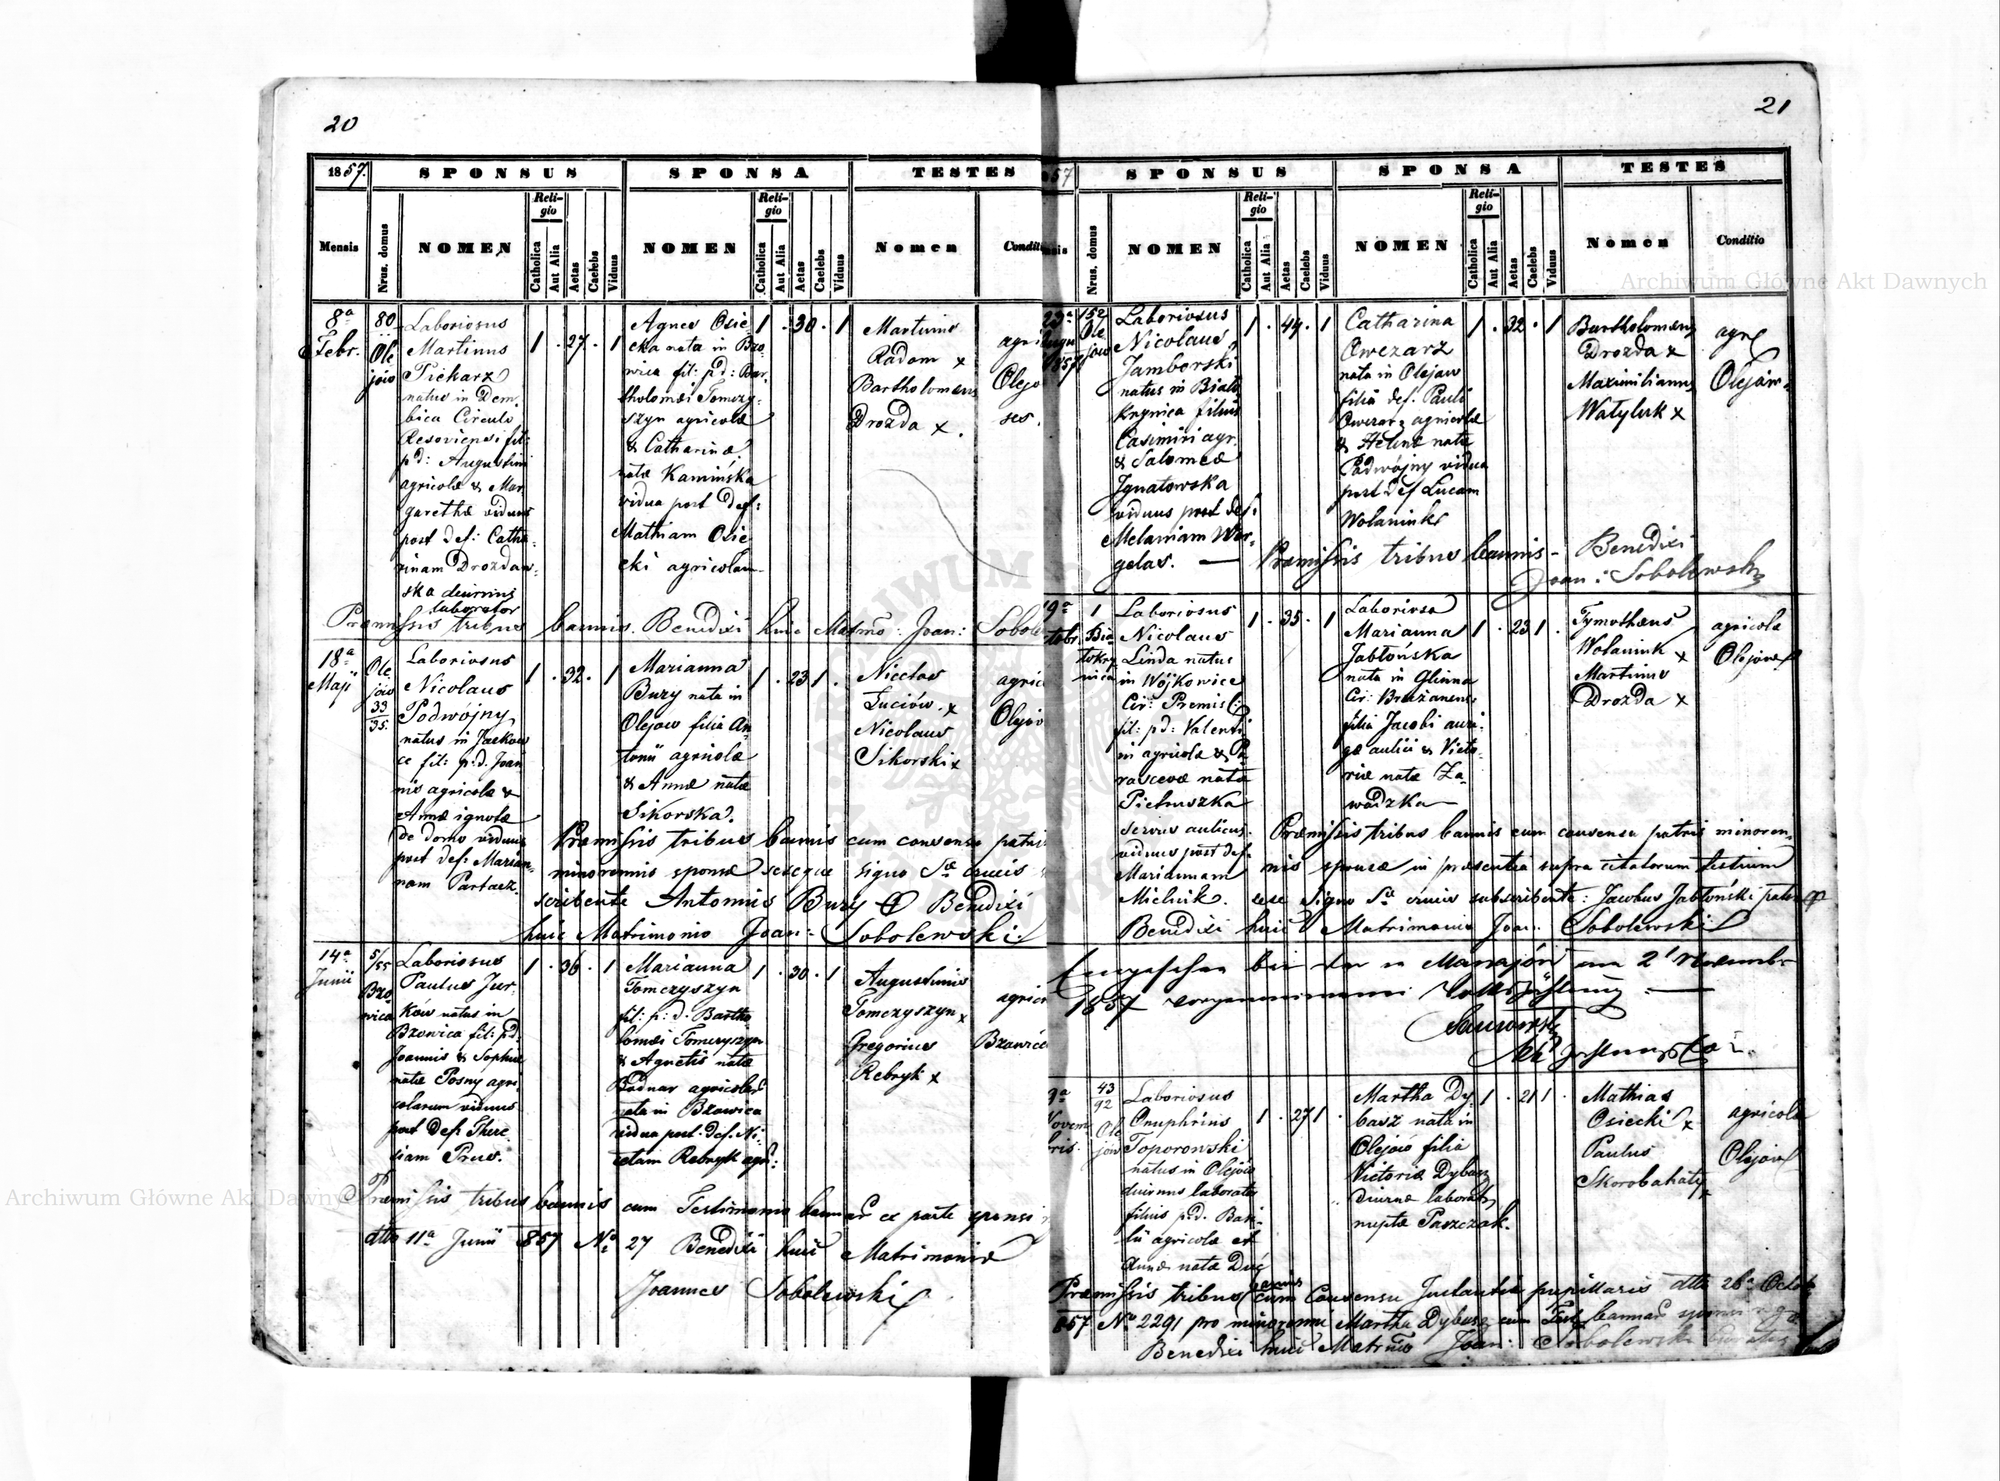 20
1857.
SPONSUS
SPONSA
TESTES
Mensis
Nrus. domus
NOMEN
Religio
Catholica
Aut Alia
Aetas
Caelebs
Viduus
NOMEN
Religio
Catholica
Aut Alia
Aetas
Caelebs
Viduus
Nomen
Conditi
8a
Febr.
80
Ole
jów
Laboriosus
Martinus
Piekarz
natus in Dem-
bica Circulo
Resoviensi fil:
p d: Augustini
agricolæ & Mar
garethæ viduus
post def: Catha-
rinam Drozdow-
ska diurnus
laborator
1 . 27 . 1
Agnes Osie
cka nata in Bzo
wica fil: p d: Bar-
tholomæi Tomczy-
szyn agricolæ
& Catharinæ
natæ Kamińska
vidua post def:
Mathiam Osie
cki agricolam
1 . 30 . 1
Martinus
Radom x
Bartholomæus
Drozda x.
agri
Olejo
ses.
Præmissis tribus bannis. Benedixi huic Matrmo: Joan: Sobole
18a
Maji
Ole
jów
33
35.
Laboriosus
Nicolaus
Podwójny
natus in Jackow
ce fil: p. d. Joan
nis agricolæ &
Annæ ignotæ
de domo viduus
post def: Marian-
nam Partacz.
1 . 32 . 1
Marianna
Bury nata in
Olejow filia An-
tonii agricolæ
& Annæ natæ
Sikorska.
1 . 23 1 .
Nicetas
Luciów x
Nicolaus
Sikorski x
agric
Olejów
Præmissis tribus bannis cum consensu patri
minorennis sponsæ seseque signo Sæ crucis
scribente Antonius Bury Benedixi
huic Matrimonio Joan: Sobolewski
14a
Junii
5/55
Bzo
wica
Laboriosus
Paulus Jur-
ków natus in
Bzowica fil: p d.
Joannis & Sophiæ
natæ Posny agri
colarum viduus
post def: There
siam Prus.
1 . 36 . 1
Marianna
Tomczyszyn
fil: p: d: Bartho
lomæi Tomczyszyn
& Agnetis natæ
Bodnar agricolar
nata in Bzowica
vidua post. def. Ni-
cetam Rebryk agr:
1 . 30 . 1
Augustinus
Tomczyszyn x
Gregorius
Rebryk x
agric
Bzowice
Præmissis tribus bannis cum Testimonio bannar ex parte sponsi
dtto 11a Junii 857 No 27 Benedixi huic Matrimonio
Joannes Sobolewski
21
57
SPONSUS
SPONSA
TESTES
Nrus. domus
NOMEN
Religio
Catholica
Aut Alia
Aetas
Caelebs
Viduus
NOMEN
Religio
Catholica
Aut Alia
Aetas
Caelebs
Viduus
Nomen
Conditio
23a
857
152
Ole
jów
Laboriosus
Nicolaus
Jamborski
natus in Biało
krynica filius
Casimiri agr.
& Salomeæ
Ignatowska
viduus post def:
Melaniam War-
gelas.
1 . 44 . 1
Catharina
Owczarz
nata in Olejow
filia def. Pauli
Owczarz agricolæ
& Helenæ natæ
Podwójny vidua
post def Lucam
Wolaniuk
1 . 32 . 1
Bartholomæus
Drozda x
Maximilianus
Watyluk x
agr
Olejow
Præmissis tribus bannis - Benedixi
Joan: Sobolewski
19a
1
Bia
łokry
nica
Laboriosus
Nicolaus
Linda natus
in Wójkowice
Cir: Premisl:
fil: p d: Valenti
ni agricolæ & Pa
rascevæ natæ
Pietruszka
servus aulicus
viduus post def.
Mariannam
Mielnik.
1 . 35 . 1
Laboriosa
Marianna
Jabłońska
nata in Glinna
Cir: Brzeżanensi
filia Jacobi auri-
gæ aulici & Victo-
riæ natæ Za-
wadzka
1 . 23 1 .
Tymotheus
Wolaniuk x
Martinus
Drozda x
agricolæ
Olejow
Præmissis tribus bannis cum consensu patris minoren
nis sponsæ in præsentia supra citatorum testium
sese signo Sæ crucis subscribente: Jacobus Jabłoński pater
Benedixi huic Matrimonio Joan: Sobolewski
bei der in Manajów am 2t Novembr
1857 vorgenommenen
9a
Novem
bris.
43
92
Ole
jów
Laboriosus
Onuphrius
Toporowski
natus in Olejów
diurnus laborator
filius p. d. Basi-
lii agricolæ et
Annæ natæ
1 . 27 1 .
Martha Dy-
basz nata in
Olejów filia
Victoriæ Dybasz
diurnæ laborat
nuptæ Paszczak.
1 . 21 1 .
Mathias
Osiecki x
Paulus
Skorobahaty x
agricolæ
Olejow
Præmissis tribus bannis cum Consensu Instantiæ pupillaris dtto 26a Octob
857 No 2291 pro minorenni Martha Dybasz cum Test bannar sponsi
Benedixi huic Matrmo Joan: Sobolewski
Archiwum Główne Akt Dawnych
Archiwum Główne Akt Dawnych